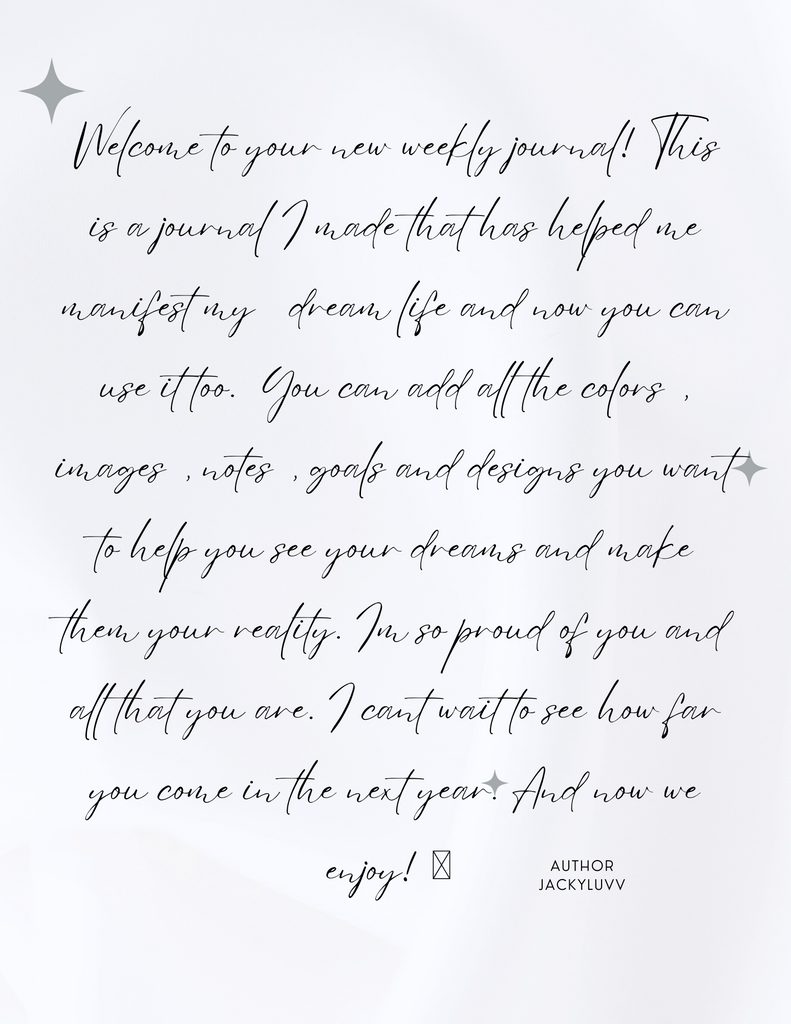 Welcome to your new weekly journal! This
is a journal I made that has helped me
manifest my dream life and now you can
use it too. You can add all the colors ,
images , notes , goals and designs you want
to help you see your dreams and make
them your reality. Im so proud of you and
all that you are. I cant wait to see how far
you come in the next year. And now we
enjoy!
AUTHOR
JACKYLUVV